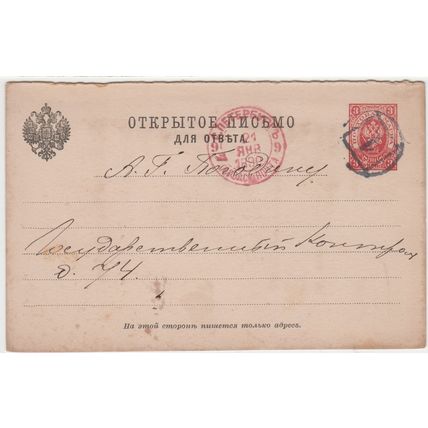 ОТКРЫТОЕ ПИСЬМО
ДЛЯ ОТВѢТА.
21
ЯНВ
А. Г.
Государственный Контрол
д. 74.
На этой сторонѣ пишется только адресъ.